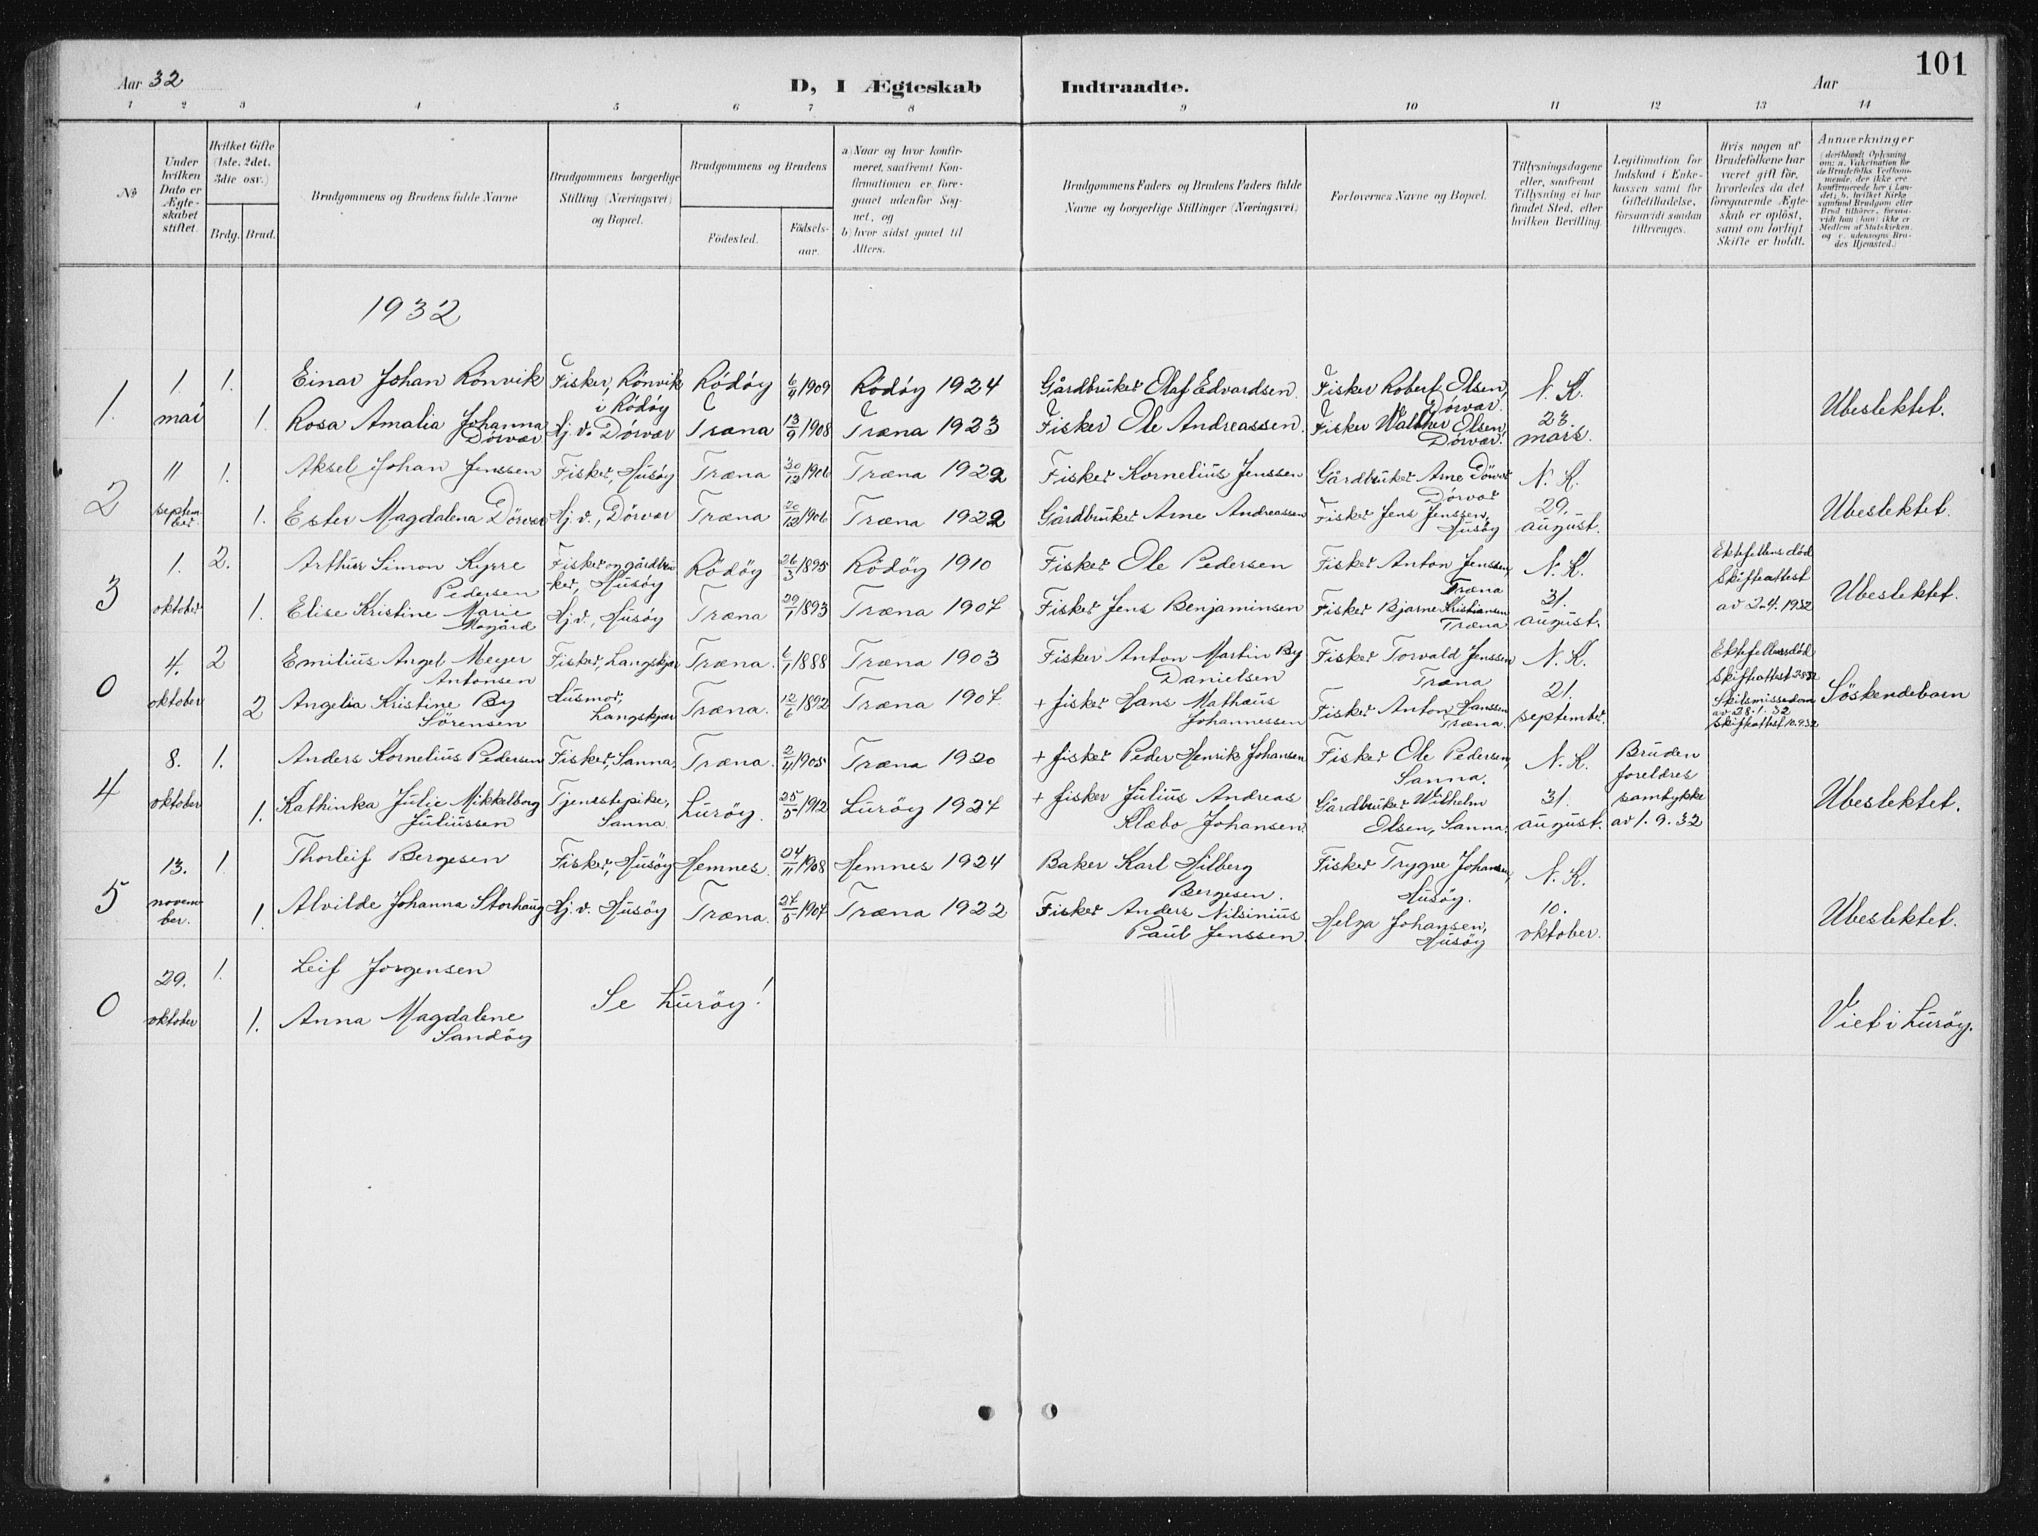 101
Aar 32
D, I Ægteskab Indtraadte.
Aar
1 2 3 4 5 6 7 8 9 10 11 12 13 14
No
Under hvilken Dato er Ægteskabet stiftet.
Hvilket Gifte (1ste, 2det, 3die osv.)
Brdg. Brud.
Brudgommens og Brudens fulde Navne
Brudgommens borgerlige Stilling (Næringsvei) og Bopæl.
Brudgommens og Brudens
Fødested.
Fødselsaar.
a) Naar og hvor konfirmeret, saafremt Konfirmationen er foregaaet udenfor Sognet, og
b) hvor sidst gaaet til Alters.
Brudgommens Faders og Brudens Faders fulde Navne og borgerlige Stillinger (Næringsvei)
Forlovernes Navne og Bopæl.
Tillysningsdagene eller, saafremt Tillysning ei har fundet Sted, efter hvilken Bevilling.
Legitimation for Indskud i Enkekassen samt for Giftetilladelse, forsaavidt saadan tiltrænges.
Hvis nogen af Brudefolkene har været gift før, hvorledes da det foregaaende Ægteskab er opløst, samt om lovligt Skifte er holdt.
Anmærkninger
(deriblandt Oplysning om: a. Vakcination for de Brudefolks Vedkommende, der ikke ere konfirmerede her i Landet, b. hvilket Kirkesamfund Brudgom eller Brud tilhører, forsaavidt han (hun) ikke er Medlem af Statskirken, og c. udensogns Brudes Hjemsted.)
1932
1. 1. mai 1. Einar Johan Rönvik Fisker, Rönvik i Rödöy Rödöy 6/4 1909 Rödöy 1924 Gårdbruker Olaf Edvardsen. Fisker Robert Olsen, Dörvær. N. K.
1. Rosa Amalia Johanna Dörvær Hj. v. Dörvær Træna 13/9 1908 Træna 1923 Fisker Ole Andreassen. Fisker Walther Olsen Dörvær. 23. mars. Ubeslektet.
2 11 september 1. Aksel Johan Jenssen Fisker, Husöy Træna 30/12 1906 Træna 1922 Fisker Kornelius Jenssen Gårdbruker Arne Dörvær Dörvær N. K.
1. Ester Magdalena Dörvær Hj. v., Dörvær Træna 20/12 1906 Træna 1922 Gårdbruker Arne Andreassen Fisker Jens Jenssen, Husöy 29. august. Ubeslektet.
3 1. oktober 2. Arthur Simon Kyrre Pedersen Fisker og gårdbruker, Husöy Rödöy 26/3 1895 Rödöy 1910 Fisker Ole Pedersen Fisker Anton Jenssen, Træna N. K. Ektefellens död Skifteattest av 2.4.1932
1. Elise Kristine Marie Mogård Hj. v., Husöy Træna 29/1 1893 Træna 1907 Fisker Jens Benjaminsen Fisker Bjarne Kristiansen Træna 31. august. Ubeslektet.
0 4. oktober 2 Emilius Angel Meyer Antonsen Fisker, Langskjær Træna. 6/1 1888 Træna 1903 Fisker Anton Martin By Danielsen Fisker Torvald Jenssen Træna N. K. Ektefellens död Skifteattest
2 Angelia Kristine By Sörensen Husmor, Langskjær Træna. 12/6 1892 Træna 1907. + fisker Hans Mathæus Johannessen Fisker Anton Hanssen Træna. 21. september. Skilsmissedom av 28.1.32 Skifteattest 10.9.32 Söskendebarn
4 8. oktober 1. Anders Kornelius Pedersen Fisker, Sanna. Træna. 2/4 1905 Træna 1920 + fisker Peder Henrik Johansen Fisker Ole Pedersen, Sanna. N. K. Bruden foreldres samtykke av 1. 9. 32
1. Kathinka Julie Mikkelborg Juliussen Tjenestepike, Sanna Luröy. 25/5 1912 Luröy 1927 + fisker Julius Andreas Klæbo Johansen. Gårdbruker Wilhelm Olsen, Sanna. 31. august. Ubeslektet.
5 13. november. 1. Thorleif Bergesen Fisker, Husöy Hemnes. 24/11 1908 Hemnes 1924 Baker Karl Hilberg Bergesen. Fisker Trygve Johansen, Husöy. N. K.
1. Alvilde Johanna Storhaug Hj. v. Husöy Træna. 27/5 1907 Træna 1922 Fisker Anders Nilsinius Paul Jenssen. Helga Johansen, Husöy 10. oktober. Ubeslektet.
0 29. oktober 1. Leif Jorgensen
1. Anna Magdalene Sandöy Se Luröy! Viet i Luröy.